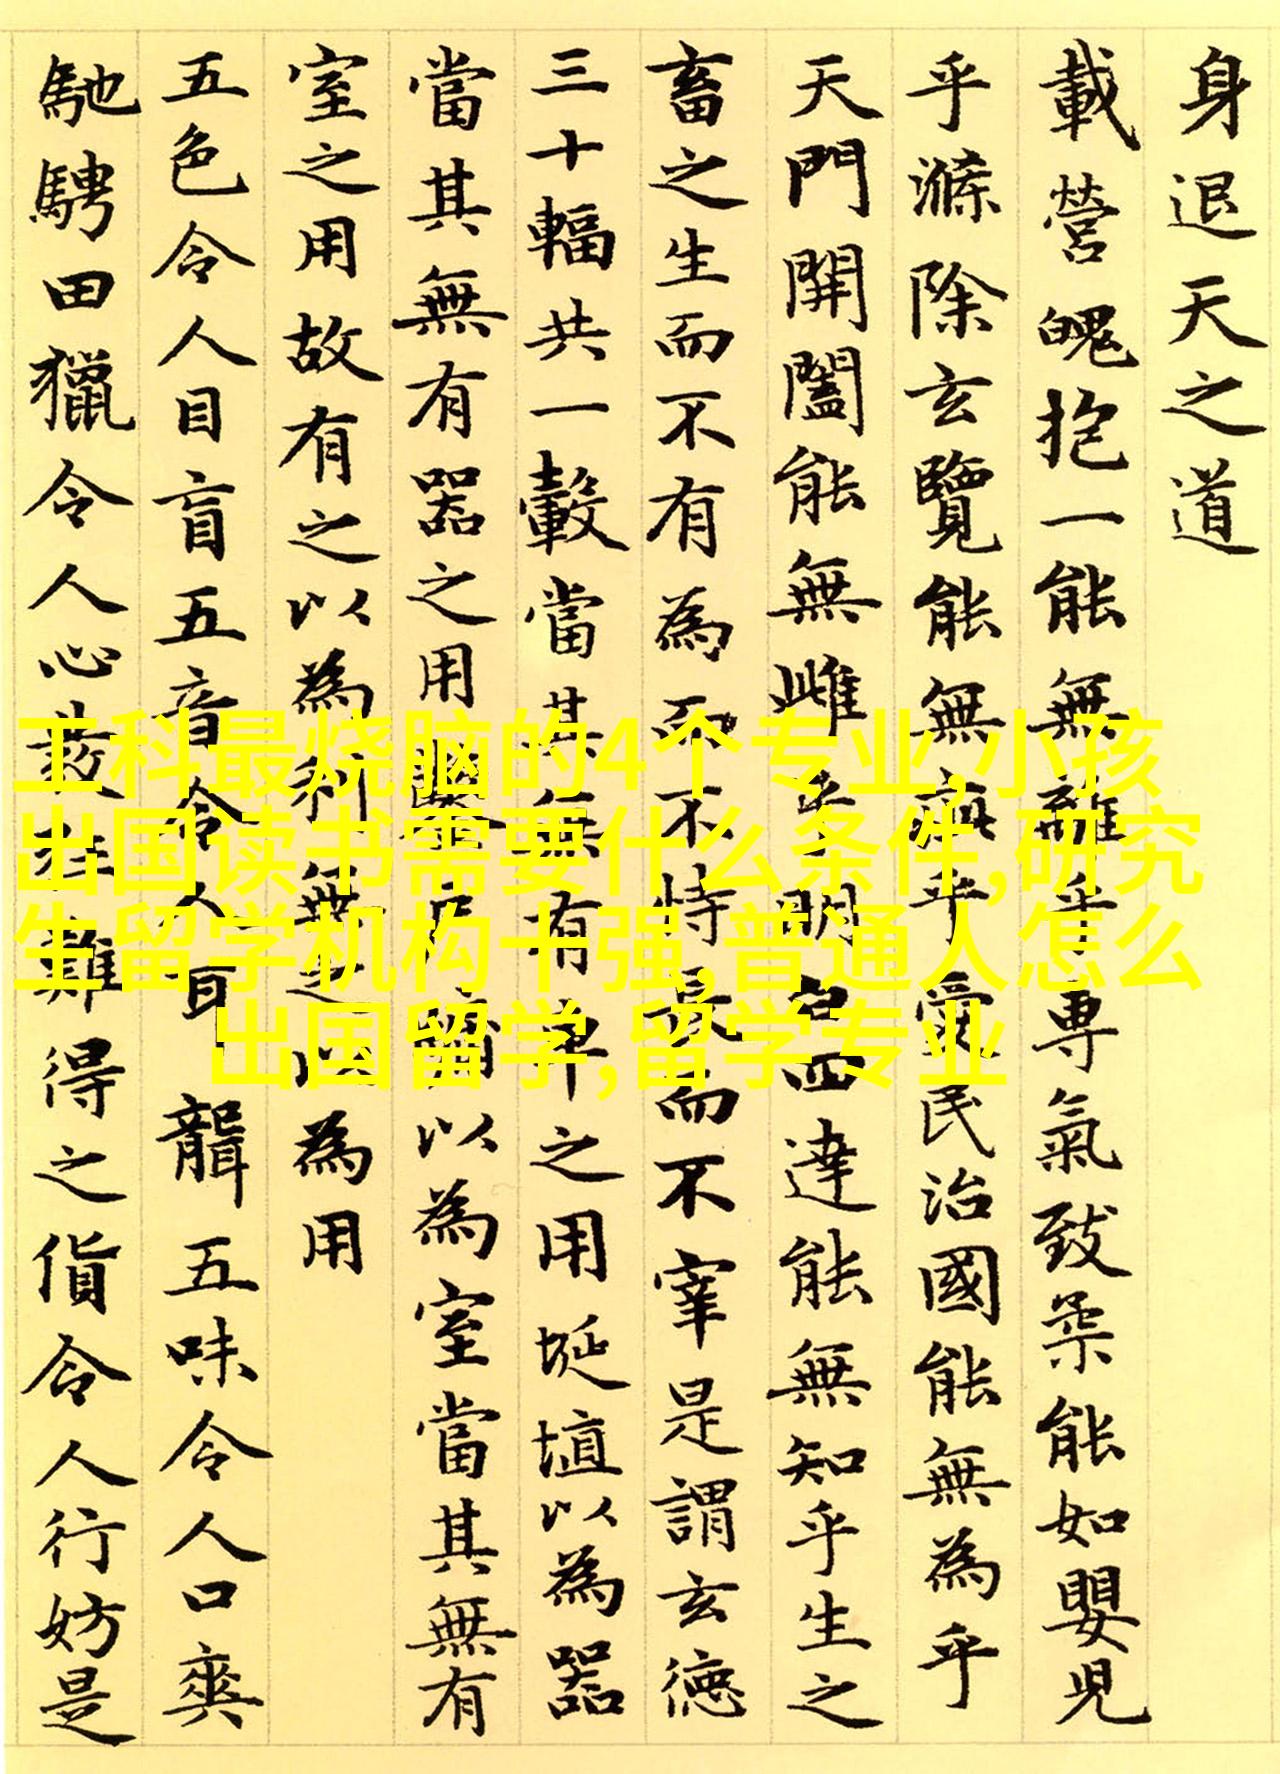 身退天之道
載營魄抱一能無離乎專氣致柔能如嬰兒
乎滌除玄覽能無疵乎愛民治國能無為乎
天門開闔能無雌乎明白四達能無知乎生之
畜之生而不有為而不恃長而不宰是謂玄德
三十輻共一轂當其無有車之用埏埴以為器
當其無有器之用鑿戶牖以為室當其無有
室之用故有之以為利無之以為用
五色令人目盲五音令人耳聾五味令人口爽
馳騁田獵令人心發狂難得之貨令人行妨是
工科最烧脑的4个专业,小孩
出国读书需要什么条件,研究
生留学机构十强,普通人怎么
出国留学,留学专业